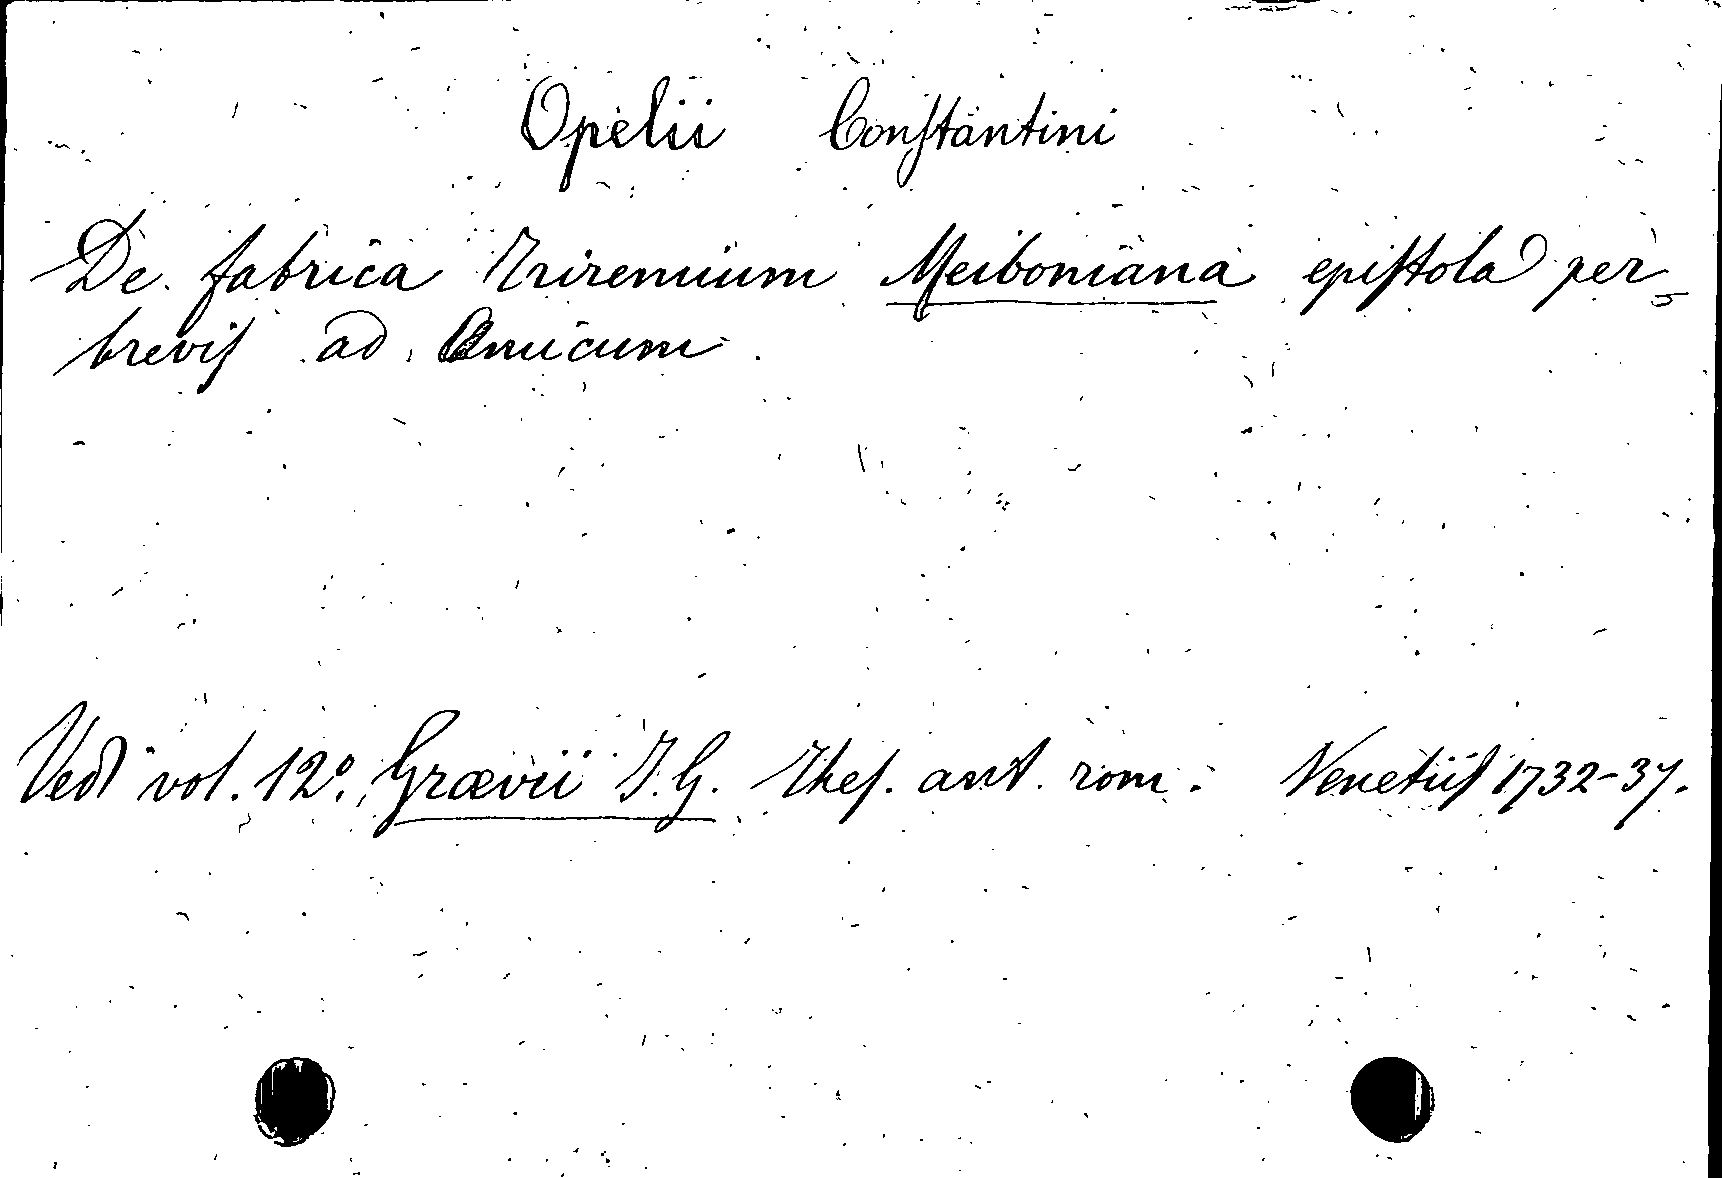 Opelii Constantini
De fabrica Triremium Meiboniana epistola per-
brevis ad Amicum.
Vedi vol. 12º. Grævii J. G. Thes. ant. rom. Venetiis 1732-37.